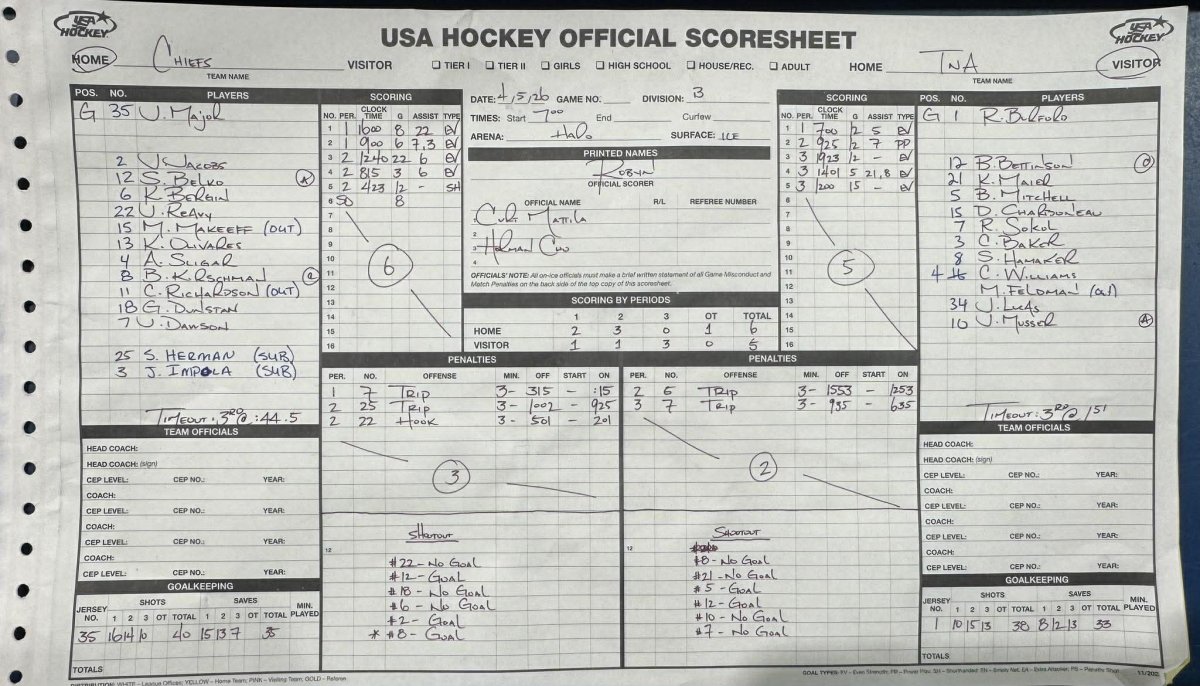 USA HOCKEY
USA HOCKEY OFFICIAL SCORESHEET
USA HOCKEY
HOME Chiefs VISITOR ☐ TIER I ☐ TIER II ☐ GIRLS ☐ HIGH SCHOOL ☐ HOUSE/REC. ☐ ADULT HOME TNA VISITOR
TEAM NAME TEAM NAME
POS. NO. PLAYERS
G 35 J. Major
2 J. Jacobs
12 S. Belko A
6 K. Bergin
22 J. Reavy
15 M. Makeeff (out)
13 K. Olivares
4 A. Sligar
8 B. Kirschman C
11 C. Richardson (out)
18 G. Dunstan
7 J. Dawson
25 S. Herman (sub)
3 J. Impola (sub)
Timeout: 3RD @ :44.5
SCORING
NO. PER. CLOCK TIME G ASSIST TYPE
1 1 1600 8 22 EV
2 1 900 6 7,3 EV
3 2 1240 22 6 EV
4 2 815 3 6 EV
5 2 423 12 - SH
6 SO 8
7
8
9
10
11
12
13
14
15
16
6
DATE: 4/5/26 GAME NO. DIVISION: B
TIMES: Start 7:00 End Curfew
ARENA: Halo SURFACE: ICE
PRINTED NAMES
Robyn
OFFICIAL SCORER
OFFICIAL NAME R/L REFEREE NUMBER
1. Curt Mattila
2.
3. Herman
4.
OFFICIALS' NOTE: All on-ice officials must make a brief written statement of all Game Misconduct and
Match Penalties on the back side of the top copy of this scoresheet.
SCORING BY PERIODS
1 2 3 OT TOTAL
HOME 2 3 0 1 6
VISITOR 1 1 3 0 5
SCORING
NO. PER. CLOCK TIME G ASSIST TYPE
1 1 700 12 5 EV
2 2 925 12 7 PP
3 3 1923 12 - EV
4 3 1401 5 21,8 EV
5 3 1200 15 - EV
6
7
8
9
10
11
12
13
14
15
16
5
POS. NO. PLAYERS
G 1 R. Burford
12 B. Bettinson C
21 K. Maier
5 B. Mitchell
15 D. Charboneau
7 R. Sokol
3 C. Baker
8 S. Hamaker
4 16 C. Williams
M. Feldman (out)
34 J. Lucas
10 J. Musser A
Timeout: 3RD @ 151
PENALTIES
PER. NO. OFFENSE MIN. OFF START ON
1 7 Trip 3- 315 - :15
2 25 Trip 3- 1002 - 925
2 22 Hook 3- 501 - 201
3
PENALTIES
PER. NO. OFFENSE MIN. OFF START ON
2 6 Trip 3- 1553 - 1253
3 7 Trip 3- 935 - 635
2
TEAM OFFICIALS
HEAD COACH:
HEAD COACH: (sign)
CEP LEVEL: CEP NO.: YEAR:
COACH:
CEP LEVEL: CEP NO.: YEAR:
COACH:
CEP LEVEL: CEP NO.: YEAR:
COACH:
CEP LEVEL: CEP NO.: YEAR:
12
Shootout
#22 - No Goal
#12 - Goal
#18 - No Goal
#6 - No Goal
#2 - Goal
* #8 - Goal
12
Shootout
#8 - No Goal
#21 - No Goal
#5 - Goal
#12 - Goal
#10 - No Goal
#7 - No Goal
TEAM OFFICIALS
HEAD COACH:
HEAD COACH: (sign)
CEP LEVEL: CEP NO.: YEAR:
COACH:
CEP LEVEL: CEP NO.: YEAR:
COACH:
CEP LEVEL: CEP NO.: YEAR:
COACH:
CEP LEVEL: CEP NO.: YEAR:
GOALKEEPING
JERSEY NO. SHOTS 1 2 3 OT TOTAL SAVES 1 2 3 OT TOTAL MIN. PLAYED
35 16 14 10 40 15 13 7 35
TOTALS
GOALKEEPING
JERSEY NO. SHOTS 1 2 3 OT TOTAL SAVES 1 2 3 OT TOTAL MIN. PLAYED
1 10 15 13 38 8 12 13 33
TOTALS
DISTRIBUTION: WHITE – League Offices; YELLOW – Home Team; PINK – Visiting Team; GOLD – Referee
GOAL TYPES: EV – Even Strength; PP – Power Play; SH – Shorthanded; EN – Empty Net; EA – Extra Attacker; PS – Penalty Shot 11/202